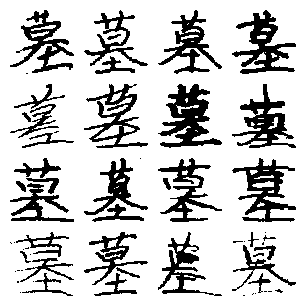 墓墓墓墓
墓墓墓墓
墓墓墓墓
墓墓墓墓